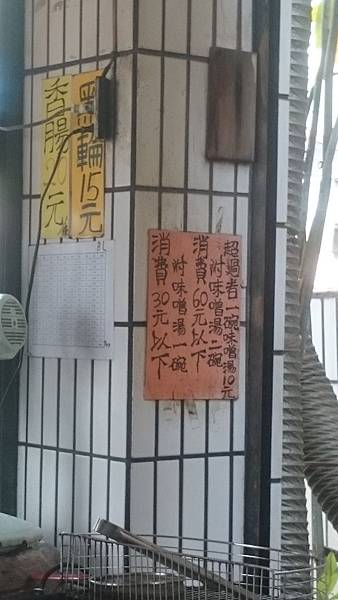 香腸
元
黑輪15元
消費30元以下
泭味噌湯一碗
消費60元以下
泭味噌湯二碗
超過者一碗味噌湯10元